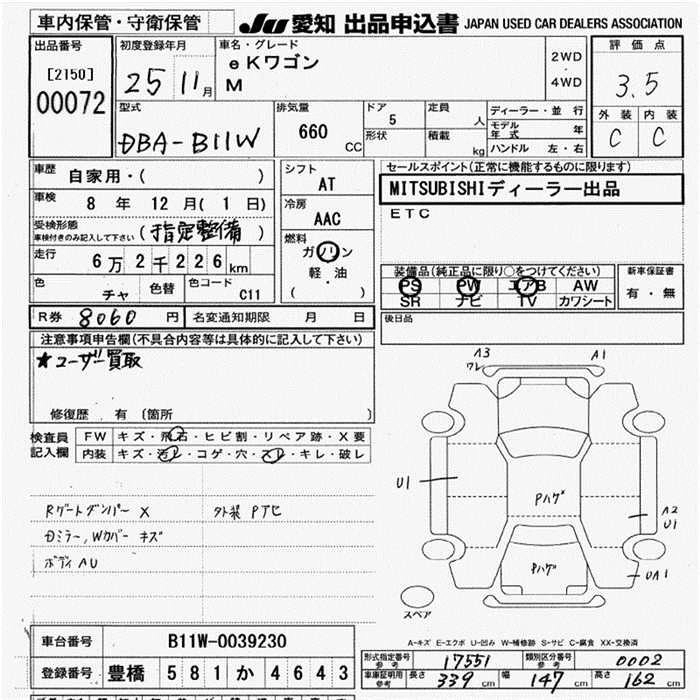 車内保管・守衛保管
JU 愛知 出品申込書 JAPAN USED CAR DEALERS ASSOCIATION
出品番号
[2150]
00072
初度登録年月
25 11月
車名・グレード
eKワゴン
M
2WD
・
4WD
評価点
3.5
外装 内装
C C
型式
DBA-B11W
排気量
660 CC
ドア
5
形状
定員
人
積載
kg
ディーラー・並行
モデル年式 年
ハンドル 左・右
車歴
自家用・( )
車検
8 年 12 月( 1 日)
受検形態
車検付きのみ記入して下さい
(指定整備)
走行
6万2千226km
色
チャ
色替
色コード
C11
シフト
AT
冷房
AAC
燃料
ガソリン
軽・油
( )
セールスポイント(正常に機能するものに限ります)
MITSUBISHIディーラー出品
ETC
装備品(純正品に限り○をつけてください)
PS PW エアB AW
SR ナビ TV カワシート
新車保証書
有・無
後日品
R券 8060 円
名変通知期限 月 日
注意事項申告欄(不具合内容等は具体的に記入して下さい)
★ユーザー買取
修復歴 有 〔箇所 〕
検査員
記入欄
FW キズ・飛石・ヒビ割・リペア跡・X要
内装 キズ・汚レ・コゲ・穴・スレ・キレ・破レ
Rゲートダンパー X
外装 Pアセ
Dミラー,Wカバー キズ
ボディ AU
A3
ワレ
A1
U1
Pハゲ
A2
U1
Pハゲ
UA1
スペア
A-キズ E-エクボ U-凹み W-補修跡 S-サビ C-腐食 XX-交換済
車台番号
B11W-0039230
登録番号
豊橋 581 か 4643
形式指定番号
参考
17551
類別区分番号
参考
0002
車庫証明用
参考
長さ 339 cm 幅 147 cm 高さ 162 cm